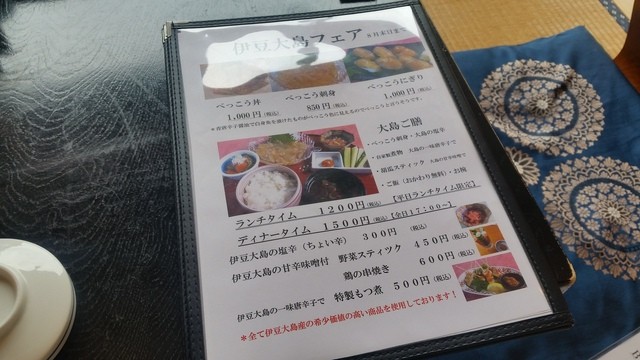 伊豆大島フェア 8月末日まで
べっこう丼 べっこう刺身 べっこうにぎり
1,000円(税込) 850円(税込) 1,000円(税込)
大島ご膳
・べっこう刺身・大島の塩辛
・ご飯(おかわり無料)・お椀
ランチタイム 1200円(税込)【平日ランチタイム限定】
ディナータイム 1500円(税込)【全日17:00~】
伊豆大島の塩辛(ちょい辛) 300円 (税込)
伊豆大島の甘辛味噌付 野菜スティック 450円(税込)
鶏の串焼き 600円(税込)
伊豆大島の一味唐辛子で 特製もつ煮 500円(税込)
*全て伊豆大島産の希少価値の高い商品を使用しております!